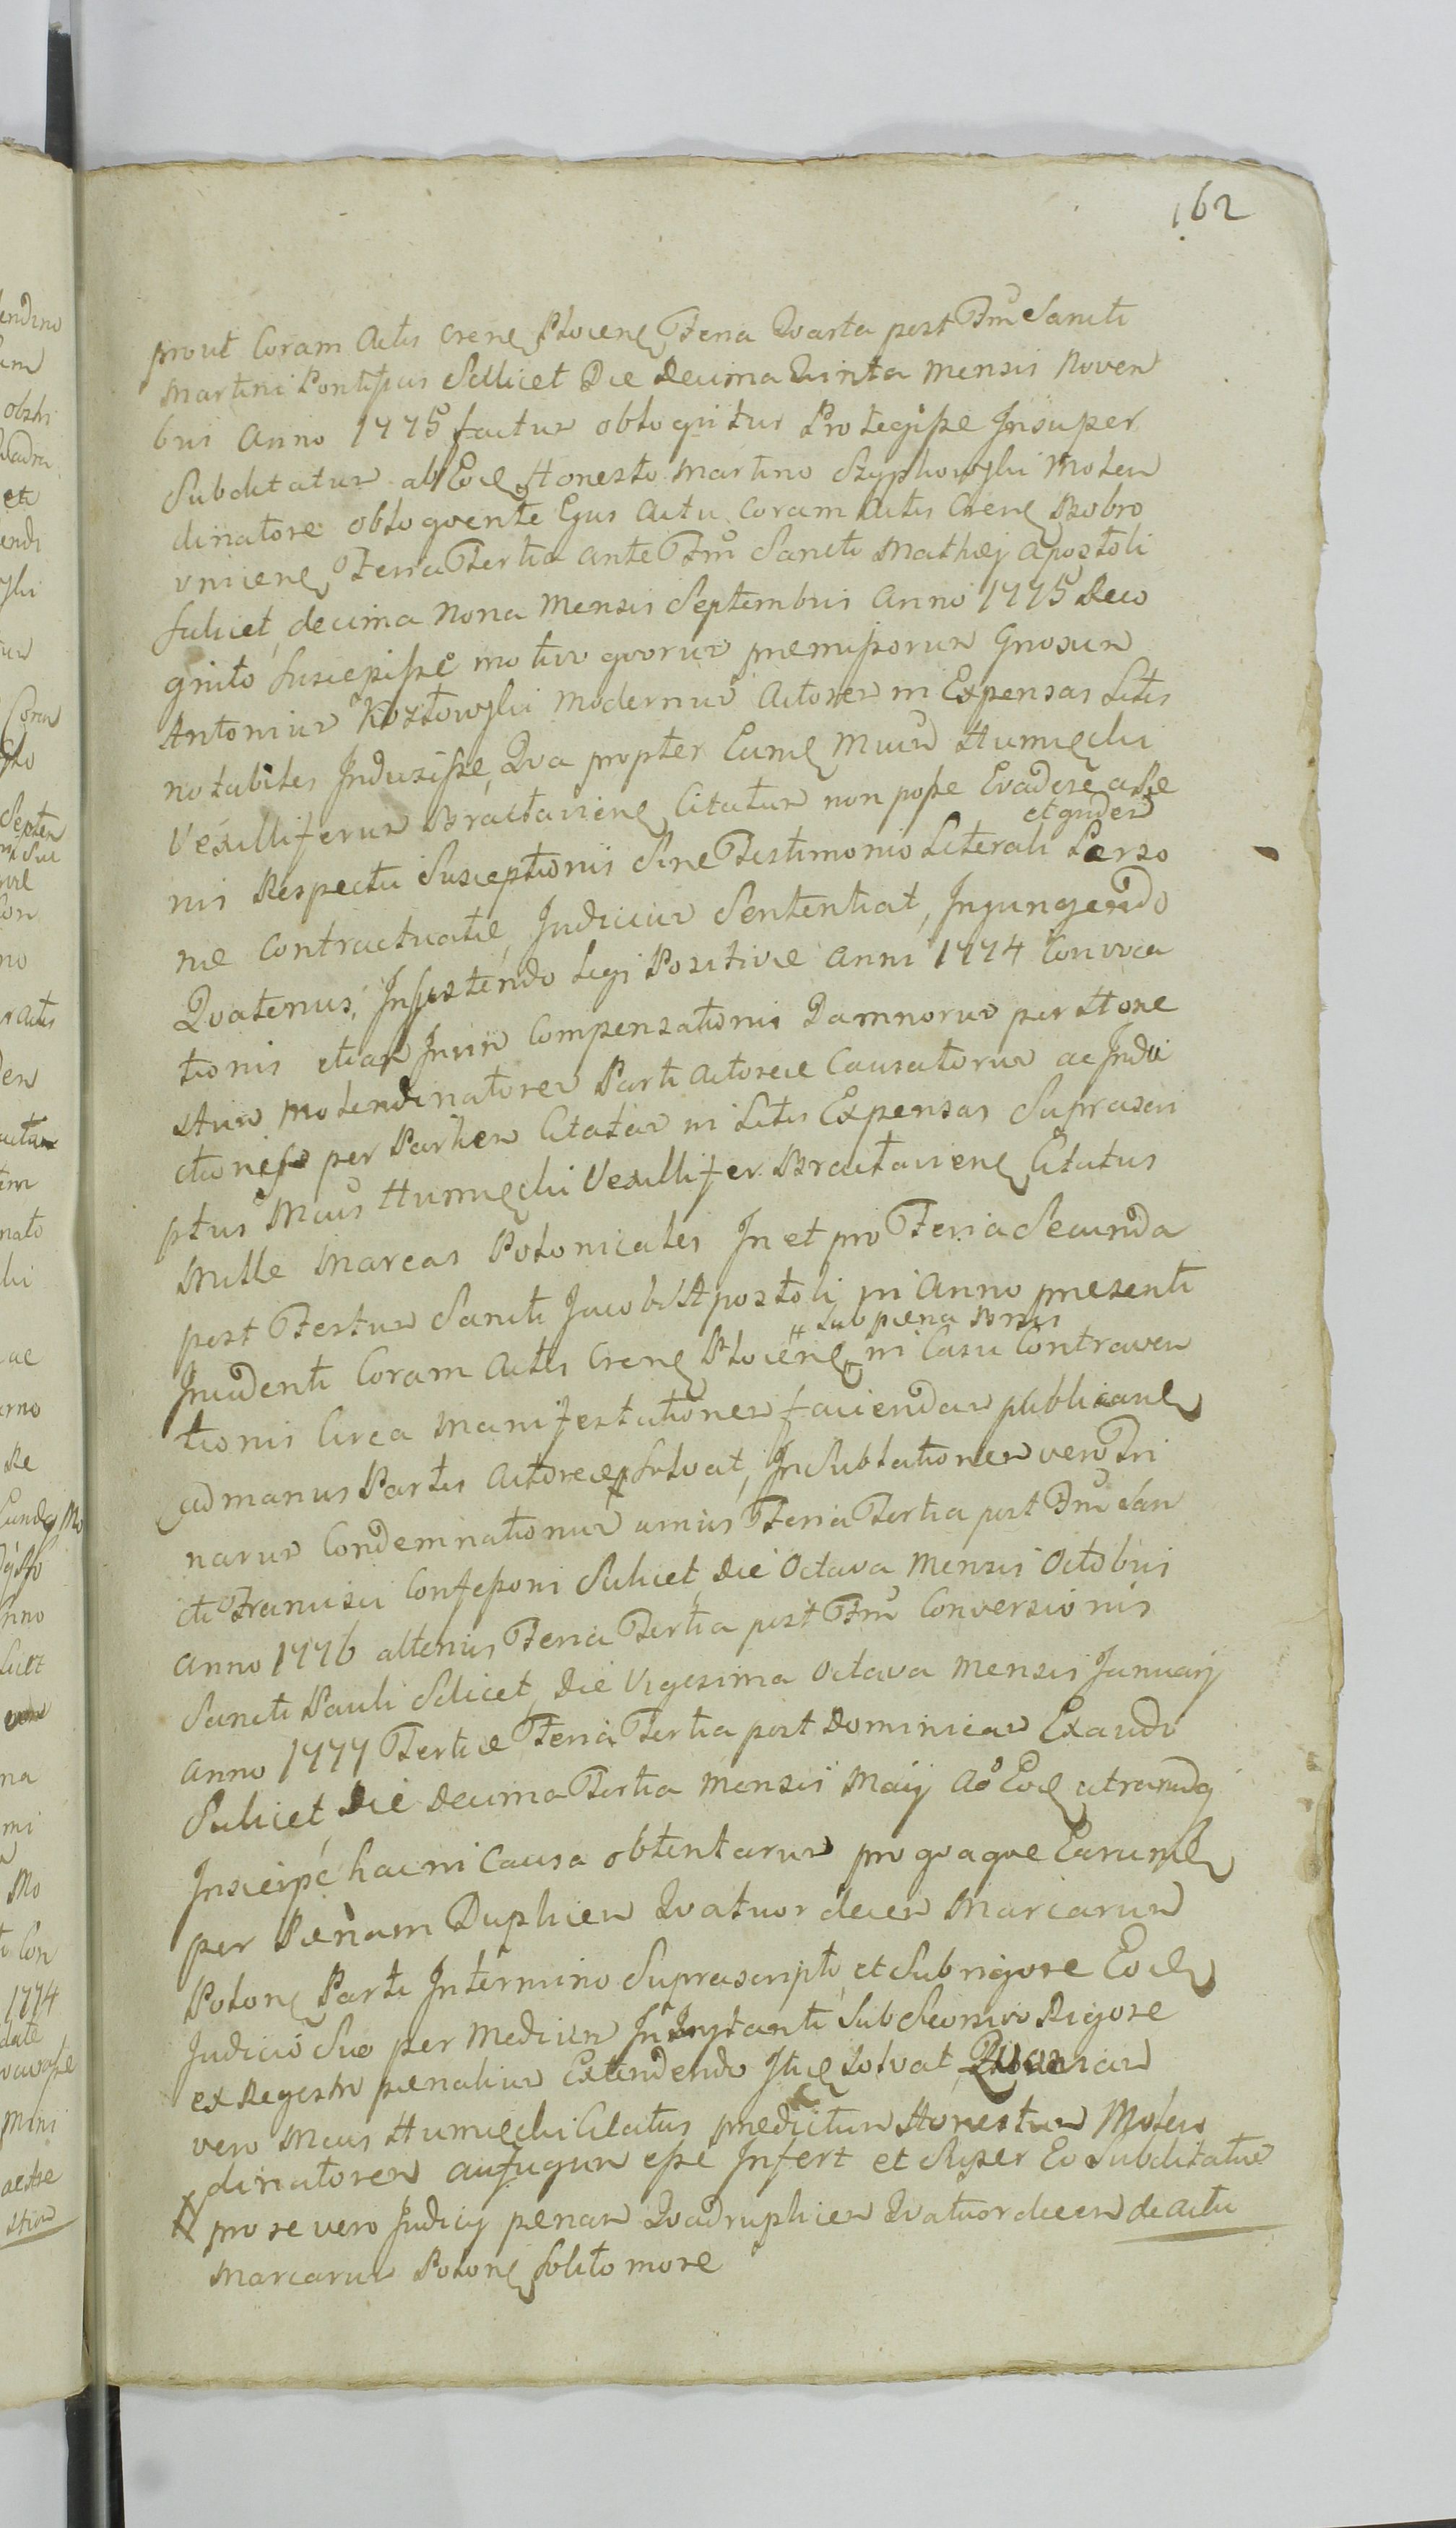 162
prout Coram Actis Crens Plocens Feria Quarta post Fm Sancti
Martini Pontificis Scilicet Die Decima Quinta Mensis Novem
bris Anno 1775 factum obloquitur Protegisse Insuper
Subditatum ab Eode Honesto Martino Szyphowski Molen
dinatore obloquente Ejus Actu Coram Actis Crens Bobro
vnicens Feria Tertia ante Fm Sancti Mathej Apostoli
Scilicet decima Nona Mensis Septembris Anno 1775 Reco
gnito Suscepisse motivo quorum premissorum Gnosum
Antonium Kozłowski Modernum Actorem in Expensas Litis
notabiles Induxisse, Qua propter Eume Mcum Humięcki
Vexilliferum Bractaviens Citatum non posse Evadere a Pe
nis Respectu Susceptionis Sine Testimonio Literali et quidem Perso
nae Contractuatae, Judicium Sententiat, Injungendo
Quatenus, Insistendo Legi Positivae Anni 1774 Convoca
tionis etiam In vim Compensationis Damnorum per Hone
stum Molendinatorem Parti Actoreae Causatorum ac Indu
ctionis per Partem Citatam in Litis Expensas Suprascri
ptus Mcus Humięcki Vexillifer Bractaviens Citatus
Mille Marcas Polonicales In et pro Feria Secunda
post Festum Sancti Jacobi Apostoli in Anno presenti
Incidenti Coram Actis Crens Plocens # sub paena Bnis in Casu Contraven
tionis Circa Manifestationem faciendam publicande
ad manus Partis Actoreae Solvat, In Sublationem vero Tri
narum Condemnationum unius Feria Tertia post Fm San
cti Francisci Confessoris Scilicet Die Octava Mensis Octobris
Anno 1776 alterius Feria Tertia post Fm Conversionis
Sancti Pauli Scilicet Die Vigesima Octava Mensis Januarij
Anno 1777 Tertiae Feria Tertia post Dominicam Exaudi
Scilicet Die Decima Tertia Mensis Maij Ao Eode utrarumq
In se ipse hac in Causa obtentarum pro quaque Earumde
per Paenam Duplicem Quatuordecem Marcarum
Polons Parti In termino Suprascripto et Sub rigore Eode
Judicio Suo per Mediem In Instanti Sub Seorsivo Rigore
ex Regestro paenalium Extendendo Itide solvat
vero Mcus Humięcki Citatus predictum Honestum Molen
dinatorem aufugum esse Infert et Super Eo Subditatur
pro se vero Judicij penam Quadruplicem Quatuordecem de actu
Marcarum Polons solito more